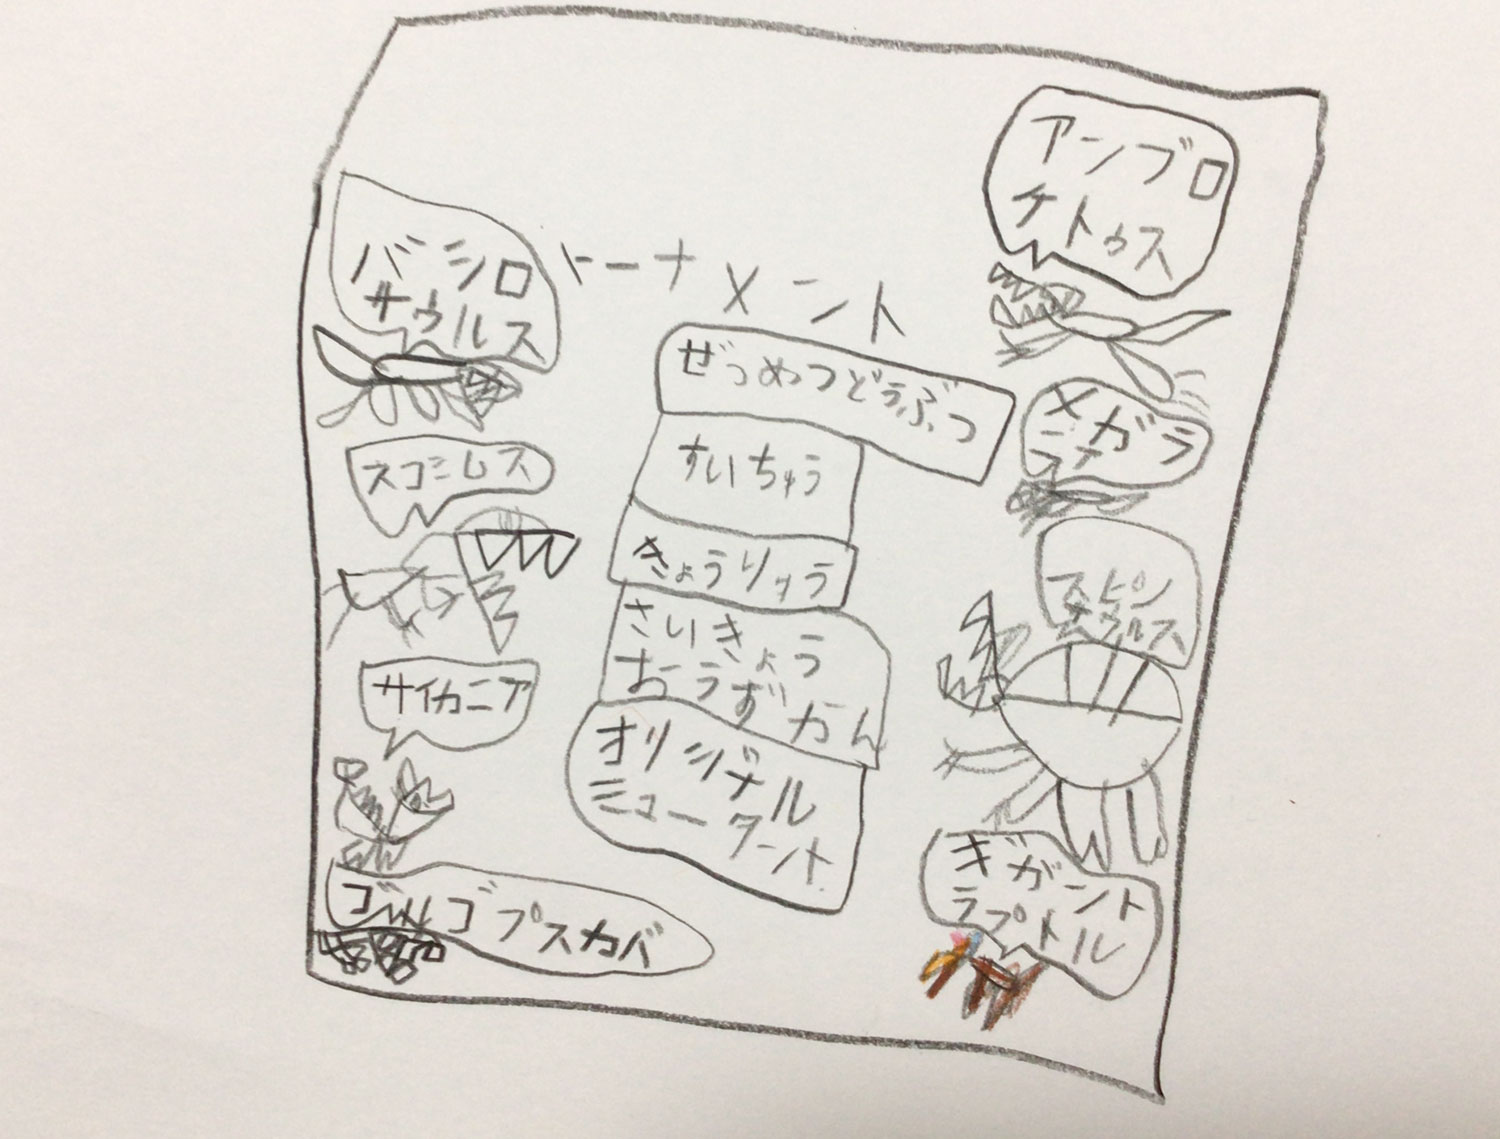 アンブロ
チトゥス
バシロ
サウルス
トーナメント
ぜつめつどうぶつ
メガラ
ニア
ネコミムス
すいちゅう
きょうりっう
スピン
サウルス
さいきょう
おうずかん
サイカニア
オリジナル
ミュータント
ギガント
ラプトル
ゴルゴプスカバ